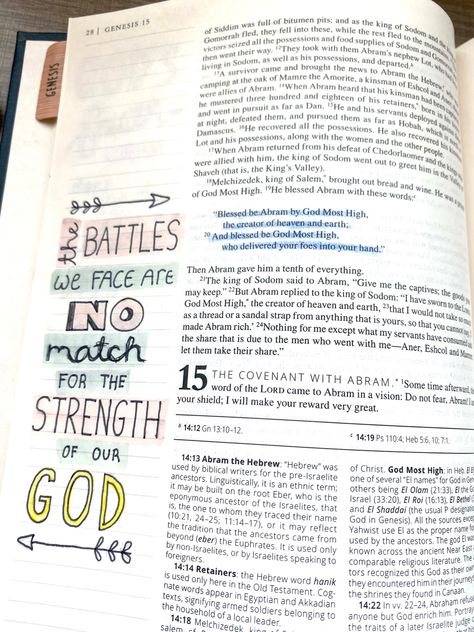 28 | GENESIS 15
GENESIS
the
BATTLES
we FACE ARE
NO
match
FOR THE
STRENGTH
OF OUR
GOD
of Siddim was full of bitumen pits; and as the king of Sodom and the
Gomorrah fled, they fell into these, while the rest fled to the
victors seized all the possessions and food supplies of Sodom and
then went their way. 12They took with them Abram's nephew Lot, who
living in Sodom, as well as his possessions, and departed.
13A survivor came and brought the news to Abram the Hebrew,
camping at the oak of Mamre the Amorite, a kinsman of Eshcol and
were allies of Abram. 14When Abram heard that his kinsman had been
he mustered three hundred and eighteen of his retainers, born in
and went in pursuit as far as Dan. 15He and his servants deployed against
at night, defeated them, and pursued them as far as Hobah, which is
Damascus. 16He recovered all the possessions. He also recovered his
Lot and his possessions, along with the women and the other people.
17When Abram returned from his defeat of Chedorlaomer and the kings
were allied with him, the king of Sodom went out to greet him in the
Shaveh (that is, the King's Valley).
18Melchizedek, king of Salem, brought out bread and wine. He was a
of God Most High. 19He blessed Abram with these words:c
"Blessed be Abram by God Most High,
the creator of heaven and earth;
20And blessed be God Most High,
who delivered your foes into your hand."
Then Abram gave him a tenth of everything.
21The king of Sodom said to Abram, "Give me the captives; the goods
may keep." 22But Abram replied to the king of Sodom: "I have sworn to the
God Most High,* the creator of heaven and earth, 23that I would not take
as a thread or a sandal strap from anything that is yours, so that you cannot
made Abram rich.' 24Nothing for me except what my servants have consumed
the share that is due to the men who went with me—Aner, Eshcol and
let them take their share."
15 THE COVENANT WITH ABRAM.* 1Some time afterward, the
word of the LORD came to Abram in a vision: Do not fear, Abram!
your shield; I will make your reward very great.
b 14:12 Gn 13:10–12.
c 14:19 Ps 110:4; Heb 5:6, 10; 7:1.
14:13 Abram the Hebrew: "Hebrew" was
used by biblical writers for the pre-Israelite
ancestors. Linguistically, it is an ethnic term;
it may be built on the root Eber, who is the
eponymous ancestor of the Israelites, that
is, the one to whom they traced their name
(10:21, 24–25; 11:14–17), or it may reflect
the tradition that the ancestors came from
beyond (eber) the Euphrates. It is used only
by non-Israelites, or by Israelites speaking to
foreigners.
14:14 Retainers: the Hebrew word hanik
is used only here in the Old Testament. Cog-
nate words appear in Egyptian and Akkadian
texts, signifying armed soldiers belonging to
the household of a local leader.
14:18 Melchizedek, king of
of Christ. God Most High: in Heb. El
one of several "El names" for God in
others being El Olam (21:33), El the
Israel (33:20), El Roi (16:13), El Bethel
and El Shaddai (the usual P designation
God in Genesis). All the sources except
Yahwist use El as the proper name for
used by the ancestors. The god El was
known across the ancient Near East
comparable religious literature. The
tors recognized this God as their own
they encountered him in their journeys
the shrines they found in Canaan.
14:22 In vv. 22–24, Abraham refuses
anyone but God enrich him. Portray
the traits of a later Israelite judge